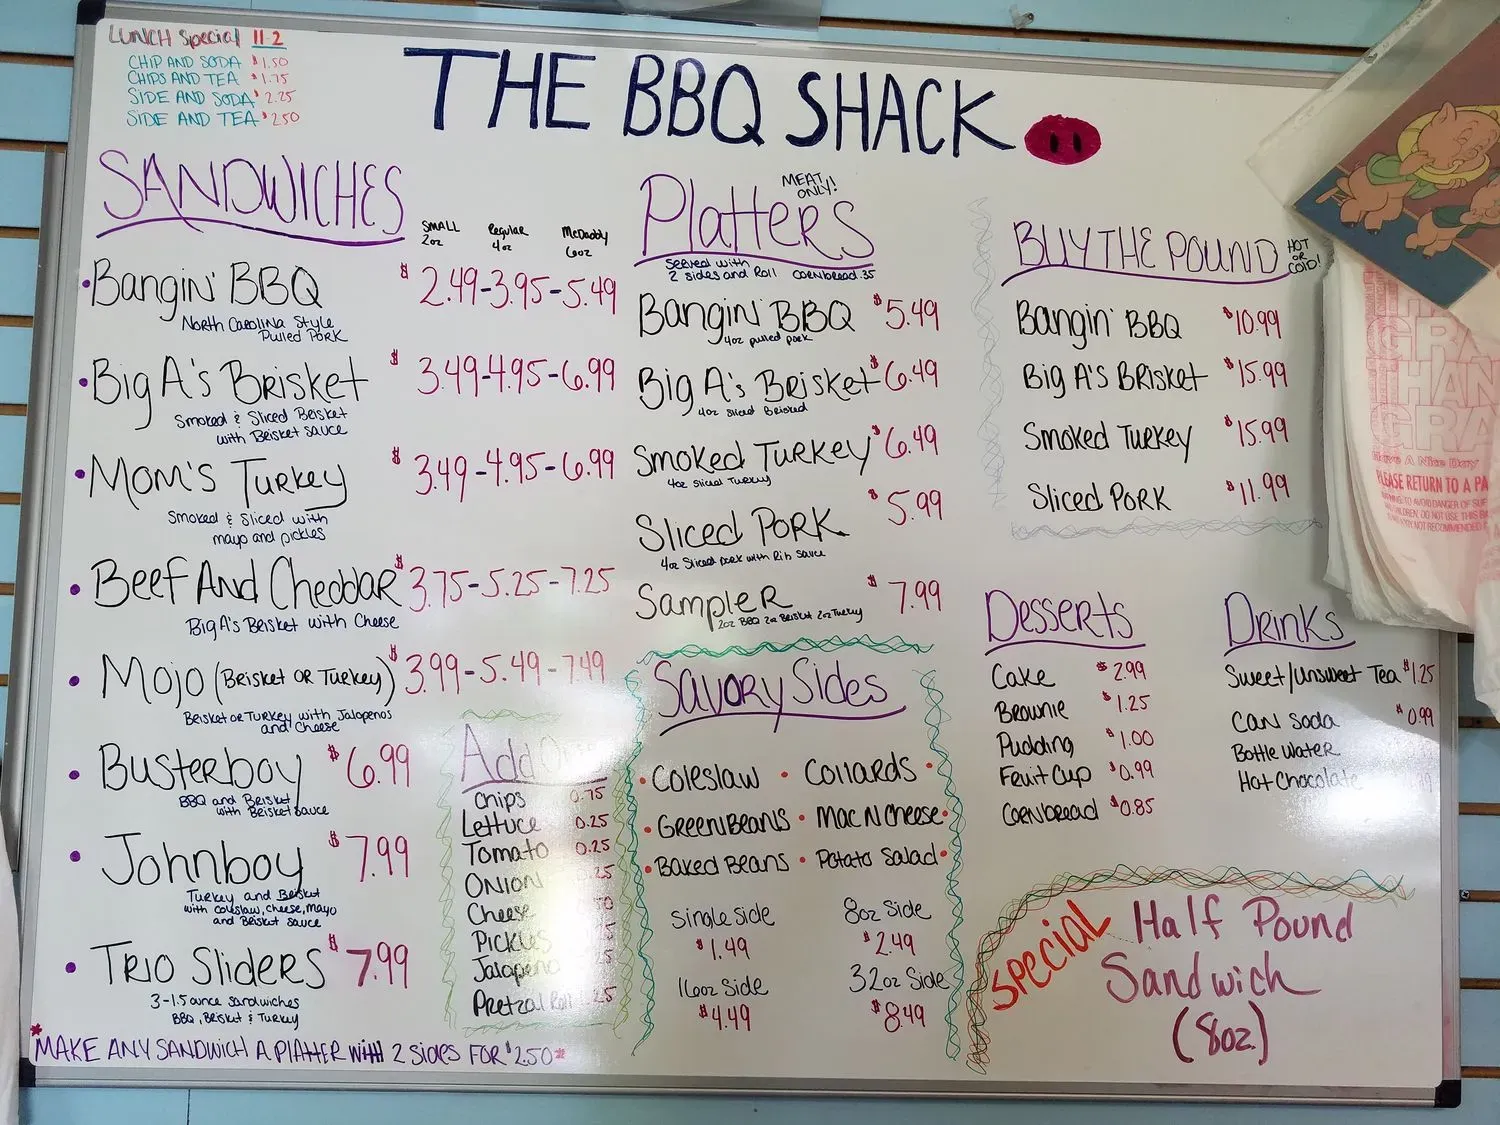 LUNCH Special 11-2
CHIP AND SODA $1.50
CHIPS AND TEA $1.75
SIDE AND SODA $2.25
SIDE AND TEA $2.50
THE BBQ SHACK
SANDWICHES
SMALL 2oz
Regular 4oz
McDaddy 6oz
Bangin' BBQ $2.49-3.95-5.49
North Carolina Style
Pulled Pork
Big A's Brisket $3.49-4.95-6.99
Smoked & Sliced Brisket
with Brisket sauce
Mom's Turkey $3.49-4.95-6.99
Smoked & Sliced with
mayo and pickles
Beef And Cheddar $3.75-5.25-7.25
Big A's Brisket with Cheese
Mojo (Brisket or Turkey) $3.99-5.49-7.49
Brisket or Turkey with Jalapenos
and Cheese
Busterboy $6.99
BBQ and Brisket
with Brisket sauce
Johnboy $7.99
Turkey and Brisket
with coleslaw, cheese, mayo
and Brisket sauce
Trio Sliders $7.99
3-1.5 ounce sandwiches
BBQ, Brisket & Turkey
*MAKE ANY SANDWICH A PLATTER WITH 2 sides FOR $2.50*
Add
Chips 0.75
Lettuce 0.25
Tomato 0.25
Onion .25
Cheese
Pickles
Jalapeno
Pretzal Roll .25
Platters MEAT ONLY!
Served with
2 sides and Roll cornbread .35
Bangin' BBQ $5.49
4oz pulled pork
Big A's Brisket $6.49
4oz sliced
Smoked Turkey $6.49
4oz sliced Turkey
Sliced Pork $5.99
4oz Sliced pork with Rib sauce
Sampler $7.99
2oz BBQ 2oz Brisket 2oz Turkey
Savory Sides
Coleslaw • Collards
Green Beans • Mac N Cheese
Baked Beans • Potato Salad
Single side $1.49
8oz Side $2.49
16oz Side $4.49
32oz Side $8.49
BUY THE POUND HOT OR COLD!
Bangin' BBQ $10.99
Big A's Brisket $15.99
Smoked Turkey $15.99
Sliced Pork $11.99
Desserts
Cake $2.99
Brownie $1.25
Pudding $1.00
Fruit Cup $0.99
Cornbread $0.85
Drinks
Sweet/Unsweet Tea $1.25
Can Soda $0.99
Bottle Water
Hot Chocolate
Special Half Pound
Sandwich
(8oz.)
THAN
GRA
Have A Nice Day
PLEASE RETURN TO A PA